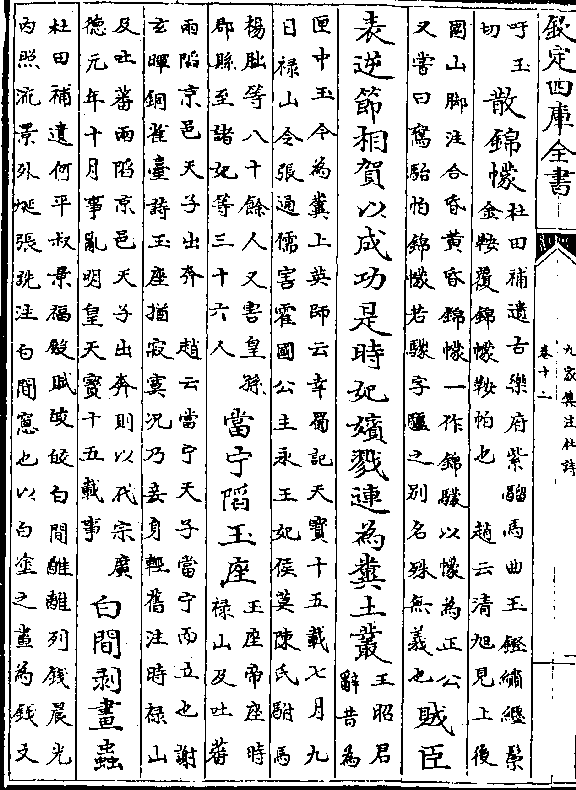 欽定四庫全書
九家集注杜詩
卷十二
吁玉
切
散錦幪
杜田補遺古樂府紫騮馬曲玉鐙繡纏鬃
金鞍覆錦幪鞍帕也 趙云清旭見上後
國山脚注合昏黃昏錦幪一作錦䮵以幪為正公
又嘗曰駑駘怕錦幪若䮵字驢之別名殊無義也
賊臣
表逆節相賀以成功是時妃嬪戮連為糞土叢
王昭君
辭昔為
匣中玉今為糞上英師云幸蜀記天寶十五載七月九
日禄山令張通儒害霍國公主永王妃侯莫陳氏駙馬
楊朏等八十餘人又害皇孫
郡縣至諸妃等三十六人
當宁陷玉座
玉座帝座時
禄山及吐蕃
兩陷京邑天子出奔 趙云當宁天子當宁而立也謝
玄暉銅雀臺詩玉座猶寂寞況乃妾身輕舊注時禄山
及吐蕃兩陷京邑天子出奔則以代宗廣
德元年十月事亂明皇天寶十五載事
白間剥畫蟲
杜田補遺何平叔景福殿賦皎皎白間離離列錢晨光
内照流景外烻張銑注白間窓也以白塗之畫為錢文